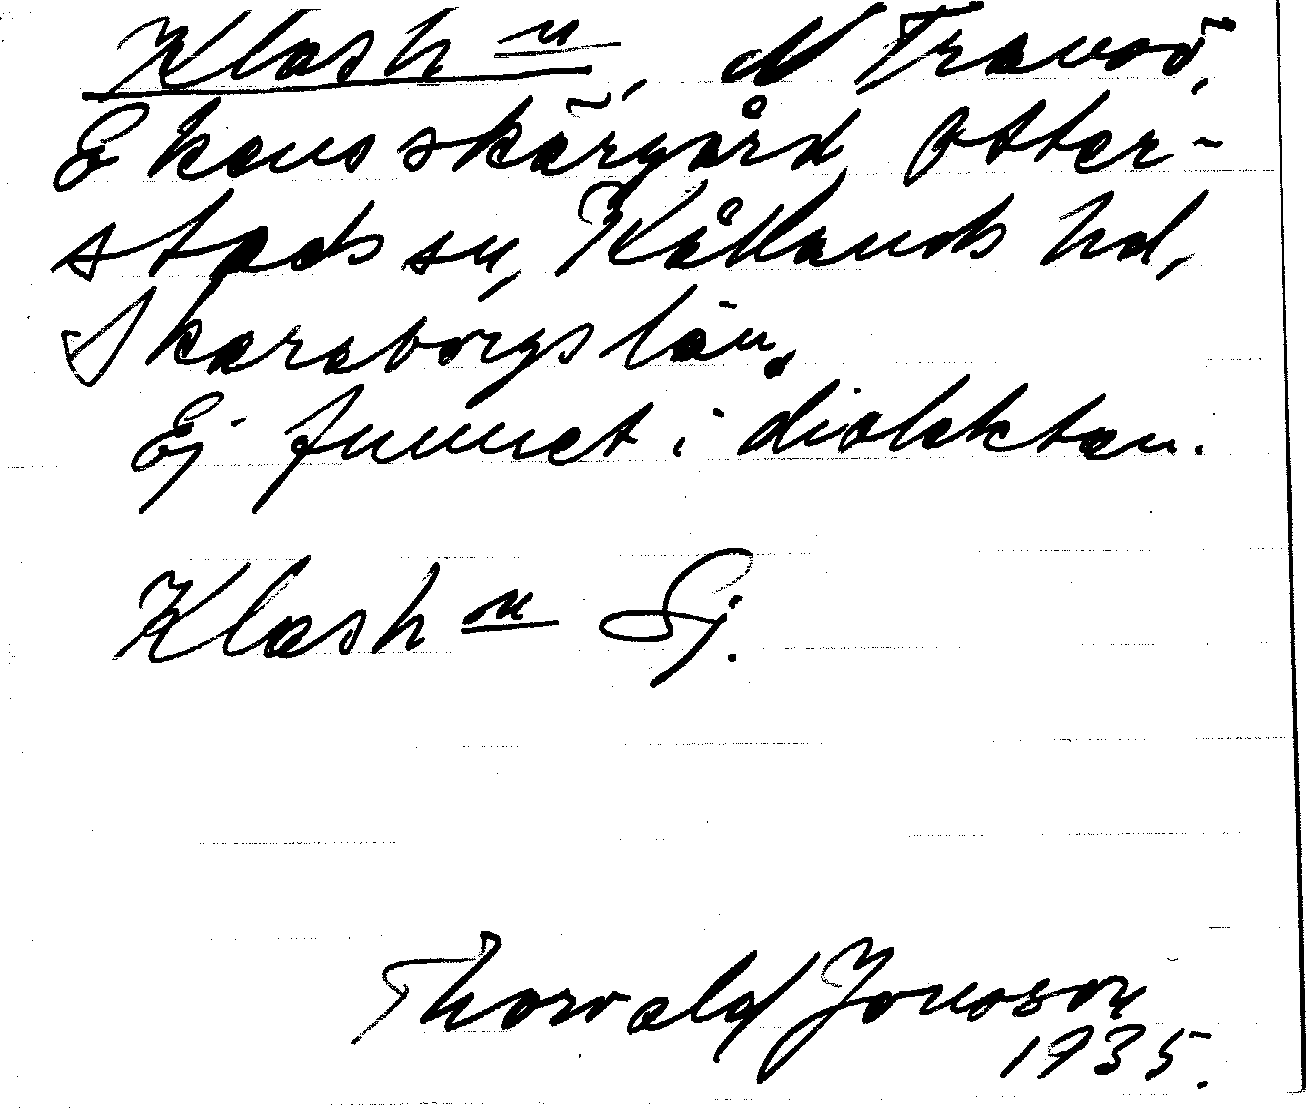 Klash n, N Tranö,
Ekens skärgård Otter-
stads sn, Kållands hd,
Skaraborgs län.
Ej funnet i dialekten.
Klash n Ej.
Thorvald Jonsson
1935.